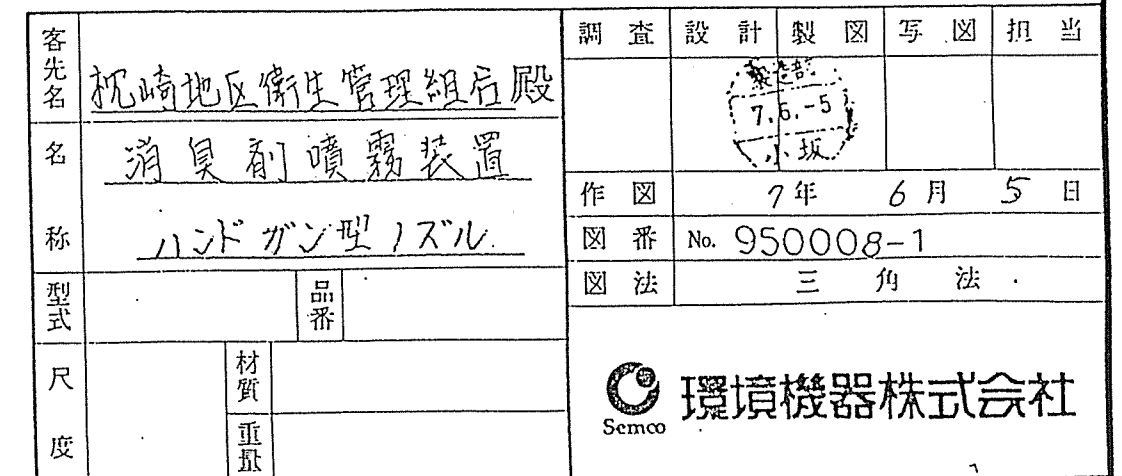 客先名 枕崎地区衛生管理組合殿
名称 消臭剤噴霧装置
ハンドガン型ノズル
型式 品番
尺度 材質
重量
調査 設計 製図 写図 担当
製造部
7.6.-5
小坂
作図 7年 6月 5日
図番 No. 950008-1
図法 三角法
Semco 環境機器株式会社